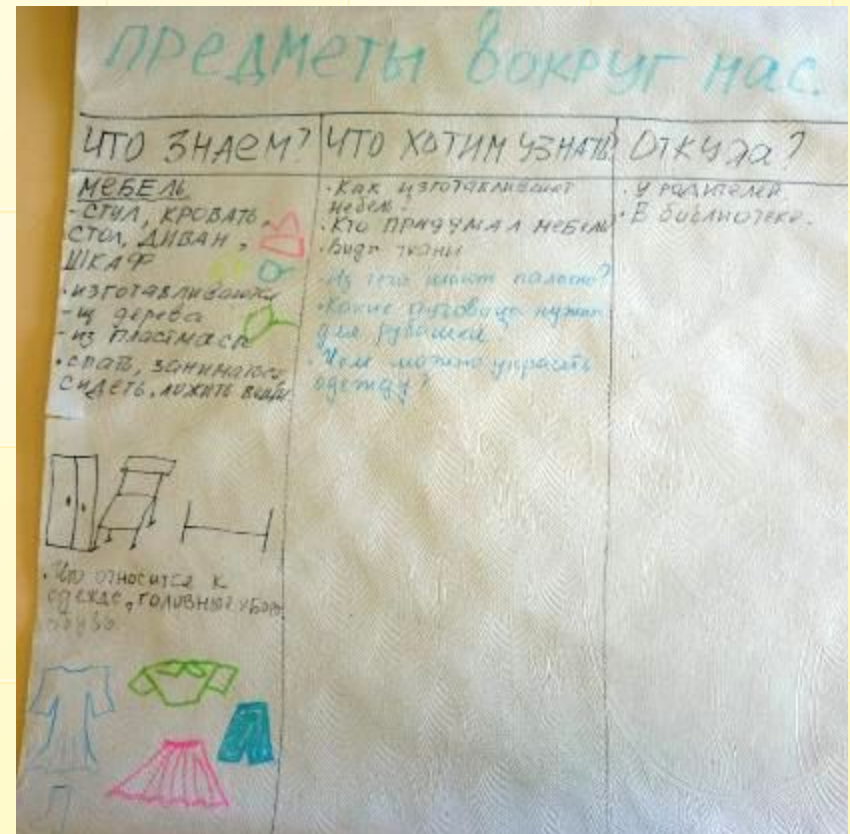 предметы вокруг нас
ЧТО ЗНАЕМ?
МЕБЕЛЬ
- СТУЛ, КРОВАТЬ,
СТОЛ, ДИВАН,
ШКАФ
- из дерева
- из пластмасс
• спать, заниматься,
сидеть, ложить вещи
• Что относится к
одежде, головные уборы
обувь
ЧТО ХОТИМ УЗНАТЬ
• Как изготавливают
мебель?
• Кто придумал мебель
• Виды ткани
• Из чего шьют пальто?
• Какие пуговицы нужны
для рубашки
• Чем можно украсить
одежду?
Откуда?
• У родителей
• В библиотеке.